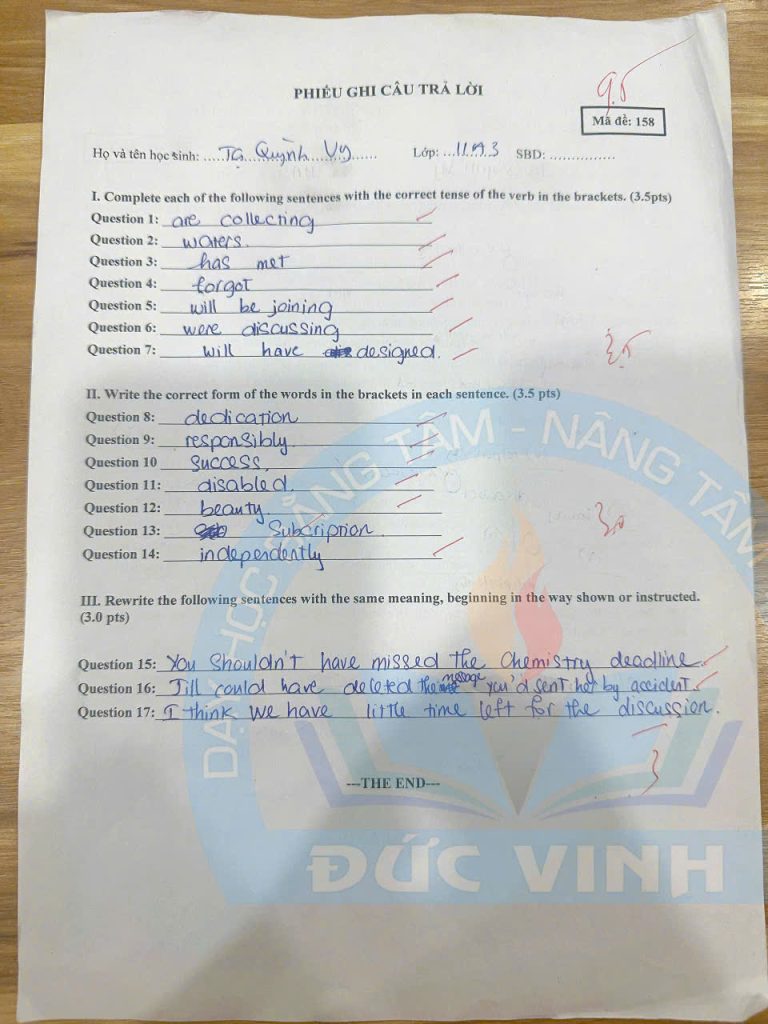 9.5
PHIẾU GHI CÂU TRẢ LỜI
Mã đề: 158
Họ và tên học sinh: .....Tạ Quỳnh Vy...... Lớp: ...11A3 SBD: ...............
I. Complete each of the following sentences with the correct tense of the verb in the brackets. (3.5pts)
Question 1: are collecting
Question 2: waters.
Question 3: has met
Question 4: forgot
Question 5: will be joining
Question 6: were discussing
Question 7: will have designed.
3.5
II. Write the correct form of the words in the brackets in each sentence. (3.5 pts)
Question 8: dedication
Question 9: responsibly.
Question 10 success.
Question 11: disabled.
Question 12: beauty.
Question 13: Subcription.
Question 14: independently
3.0
III. Rewrite the following sentences with the same meaning, beginning in the way shown or instructed.
(3.0 pts)
Question 15: You shouldn't have missed the Chemistry deadline.
Question 16: Jill could have deleted the message you'd sent her by accident.
Question 17: I think we have little time left for the discussion.
3
---THE END---
DẠY HỌC BẰNG TÂM - NÂNG TẦM
ĐỨC VINH